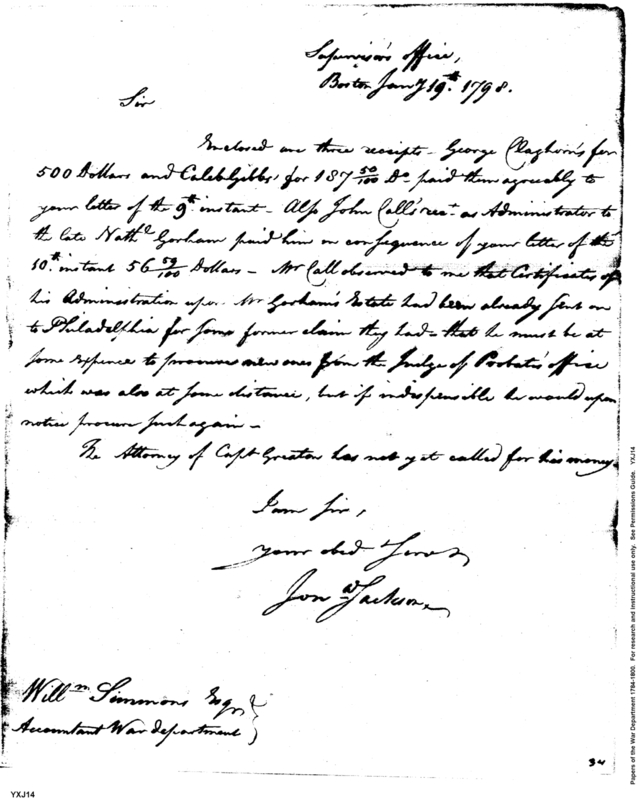 Supervisor's office,
Boston Jany 19th. 1798.
Sir
Enclosed are three receipts – George Claghorn's for
500 Dollars and Caleb Gibbs' for 187 50/100 Do paid them agreeably to
your letter of the 9th. instant – Also John Call's rect. as Administrator to
the late Nathl Gorham paid him in consequence of your letter of the
10th. instant 56 59/100 Dollars – Mr Call observed to me that Certificates of
his Administration upon Mr Gorham's Estate had been already sent on
to Philadelphia for some former claim they had – that he must be at
some expence to procure new ones from the Judge of Probate's office
which was also at some distance, but if indispensible he would upon
notice procure such again –
The Attorney of Capt Greaton has not yet called for his money.
I am Sir,
your obed Servt
Jona Jackson
Willm Simmons Esqr
Accountant War department
34
YXJ14
Papers of the War Department 1784-1800. For research and instructional use only. See Permissions Guide. YXJ14